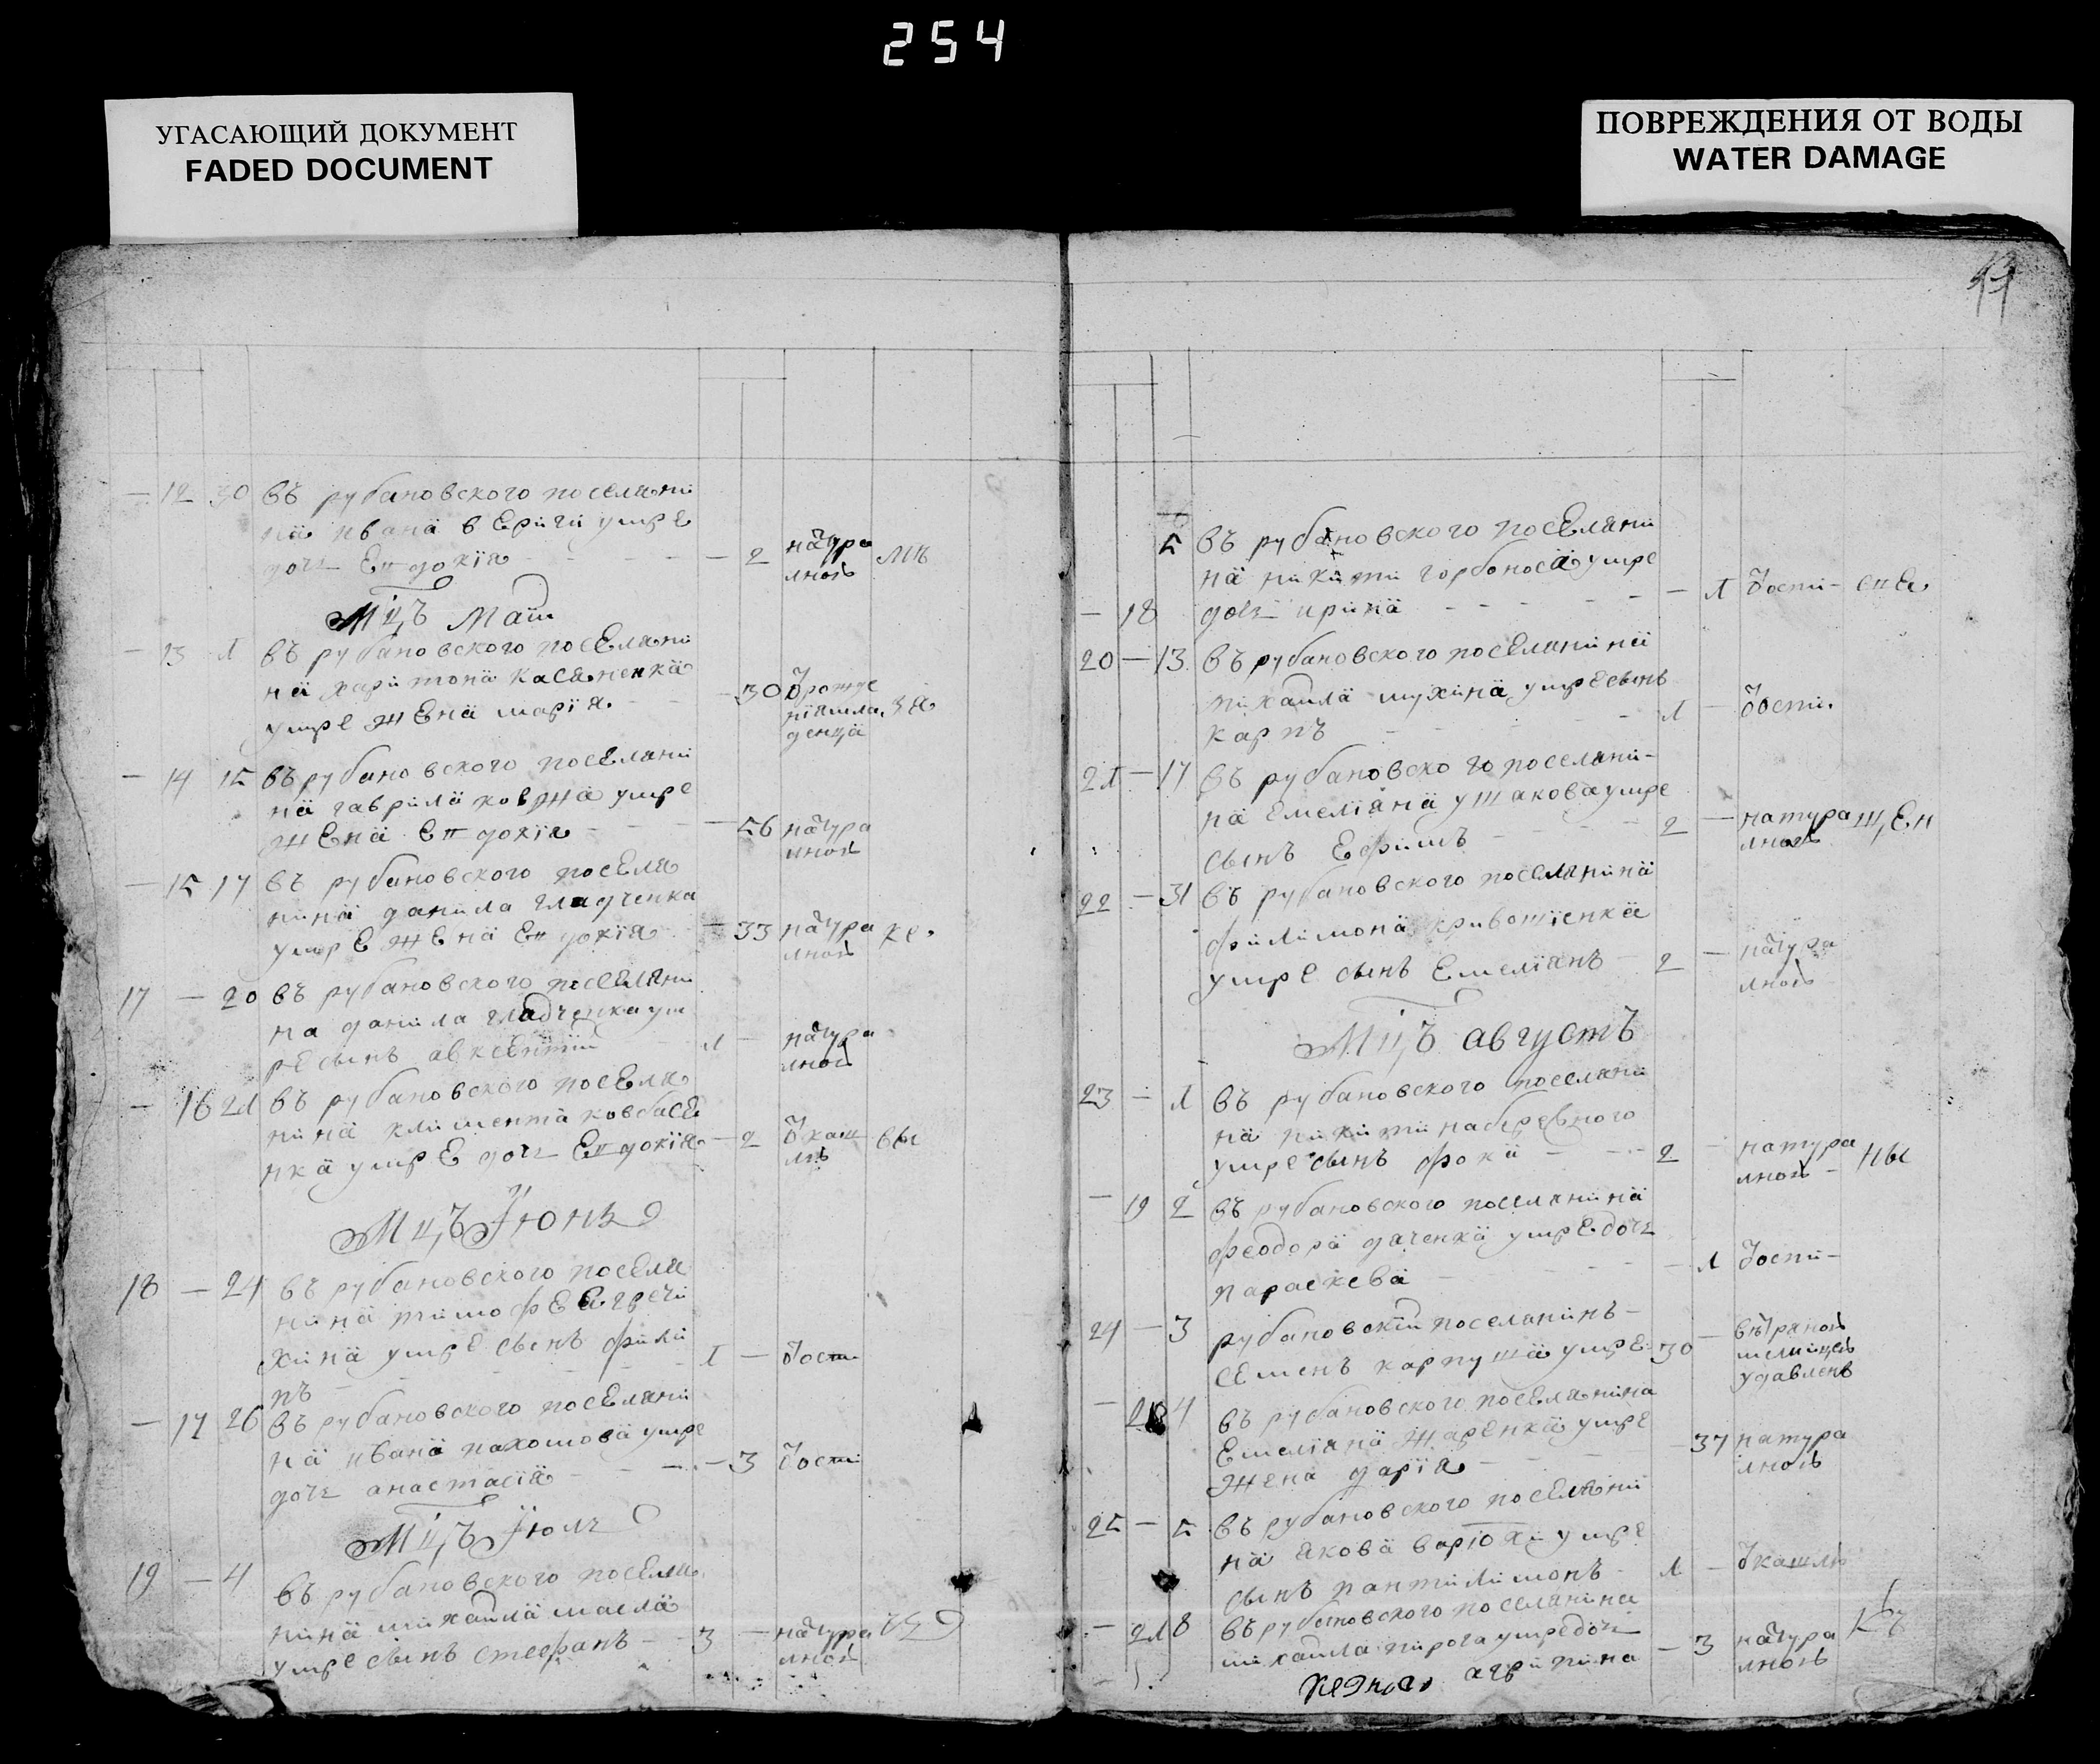 254
УГАСАЮЩИЙ ДОКУМЕНТ
FADED DOCUMENT
ПОВРЕЖДЕНИЯ ОТ ВОДЫ
WATER DAMAGE
— 12 30 въ рубановского поселяни
на ивана умре
дочь Епдокія — 2 натура
лною
Мцъ Маіи
— 13 1 въ рубановского поселяни
на харитона касяненка
умре жена марія — 30
— 14 15 въ рубановского поселяни
на гаврила ковжа умре
жена Епдокія — 56 натура
лною
— 15 17 въ рубановского поселя
нина данила гладченка
умре жена Епдокія — 33 натура
лною
17 — 20 въ рубановского поселяни
на данила гладченка ум
ре сынъ авксентій 1 — натура
лною
— 16 21 въ рубановского поселя
нина климента ковбасе
нка умре дочь Епдокія — 2 ѿ каш
лю
Мцъ Іюнь
18 — 24 въ рубановского поселя
нина тимофея гречи
хина умре сынъ фили
пъ 1 — ѿ оспи
— 17 26 въ рубановского поселяни
на ивана пахомова умре
дочь анастасія — 3 ѿ оспи
Мцъ Іюль
19 — 4 въ рубановского поселя
нина михаила масла
умре сынъ стефанъ 3 — натура
лною
— 18 5 въ рубановского поселяни
на никити горбоноса умре
дочь ирина — 1 ѿ оспи
20 — 13 въ рубановского поселянина
михаила мухина умре сынъ
карпъ 1 — ѿ оспи
21 — 17 въ рубановского поселяни
на Емеліяна ушакова умре
сынъ Ефимъ 2 — натура
лною
22 — 31 въ рубановского поселянина
филимона
умре сынъ Емеліянъ 2 — натура
лною
Мцъ августъ
23 — 1 въ рубановского поселяни
на никити набережного
умре сынъ фока 2 — натура
лною
— 19 2 въ рубановского поселянина
феодора дяченка умре дочь
параскева — 1 ѿ оспи
24 — 3 рубановскій поселянинъ
семенъ карпуша умре 30 — вѣтряною
мелницею
удавленъ
— 20 4 въ рубановского поселянина
Емеліяна жаренка умре
жена дарія — 37 натура
лною
25 — 5 въ рубановского поселяни
на якова варюхи умре
сынъ пантилимонъ 1 — ѿ кашлю
— 21 8 въ рубановского поселянина
михаила пирога умре дочь
агрипина — 3 натура
лною